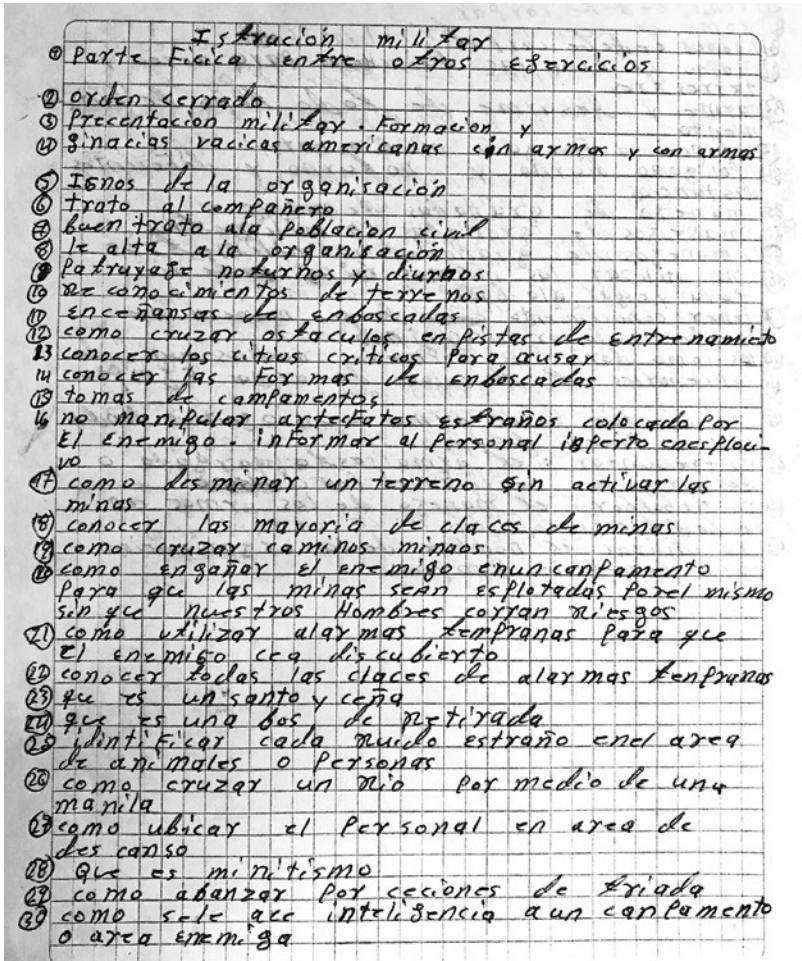 Istrución militar
① Parte Ficica entre otros egercicios
② orden cerrado
③ Precentacion militar. Formacion y
④ ginacias vacicas americanas sin armas y con armas
⑤ Ignos de la organisación
⑥ trato al compañero
⑦ buen trato ala poblacion civil
⑧ le alta ala organisación
⑨ Patruyage noturnos y diurnos
⑩ Reconocimientos de terrenos
⑪ enceñansas de enboscadas
⑫ como cruzar ostaculos en Pistas de entrenamieto
13 conocer los citios criticos Para causar
14 conocer las Formas de enboscadas
⑮ tomas de campamentos
16 no manipular artefatos estraños colocado Por
El enemigo. informar al Personal isperto enesploci-
vo
⑰ como desminar un terreno sin activar las
minas
⑱ conocer las mayoria de claces de minas
⑲ como cruzar caminos minaos
⑳ como engañar El enemigo enun canpamento
Para que las minas sean esplotadas Porel mismo
sin que nuestros Hombres corran riesgos
㉑ como utilizar alarmas tempranas Para que
El enemigo cea discubierto
㉒ conocer todas las claces de alarmas tenpranas
㉓ qu es un santo y ceña
㉔ que es una bos de Retirada
㉕ idintificar cada Ruido estraño enel area
de animales o Personas
㉖ como cruzar un rio Por medio de una
manila
㉗ como ubicar el Personal en area de
des canso
㉘ Que es minitismo
㉙ como abanzar Por ceciones de triada
㉚ como sele ace inteligencia aun canpamento
o area enemiga